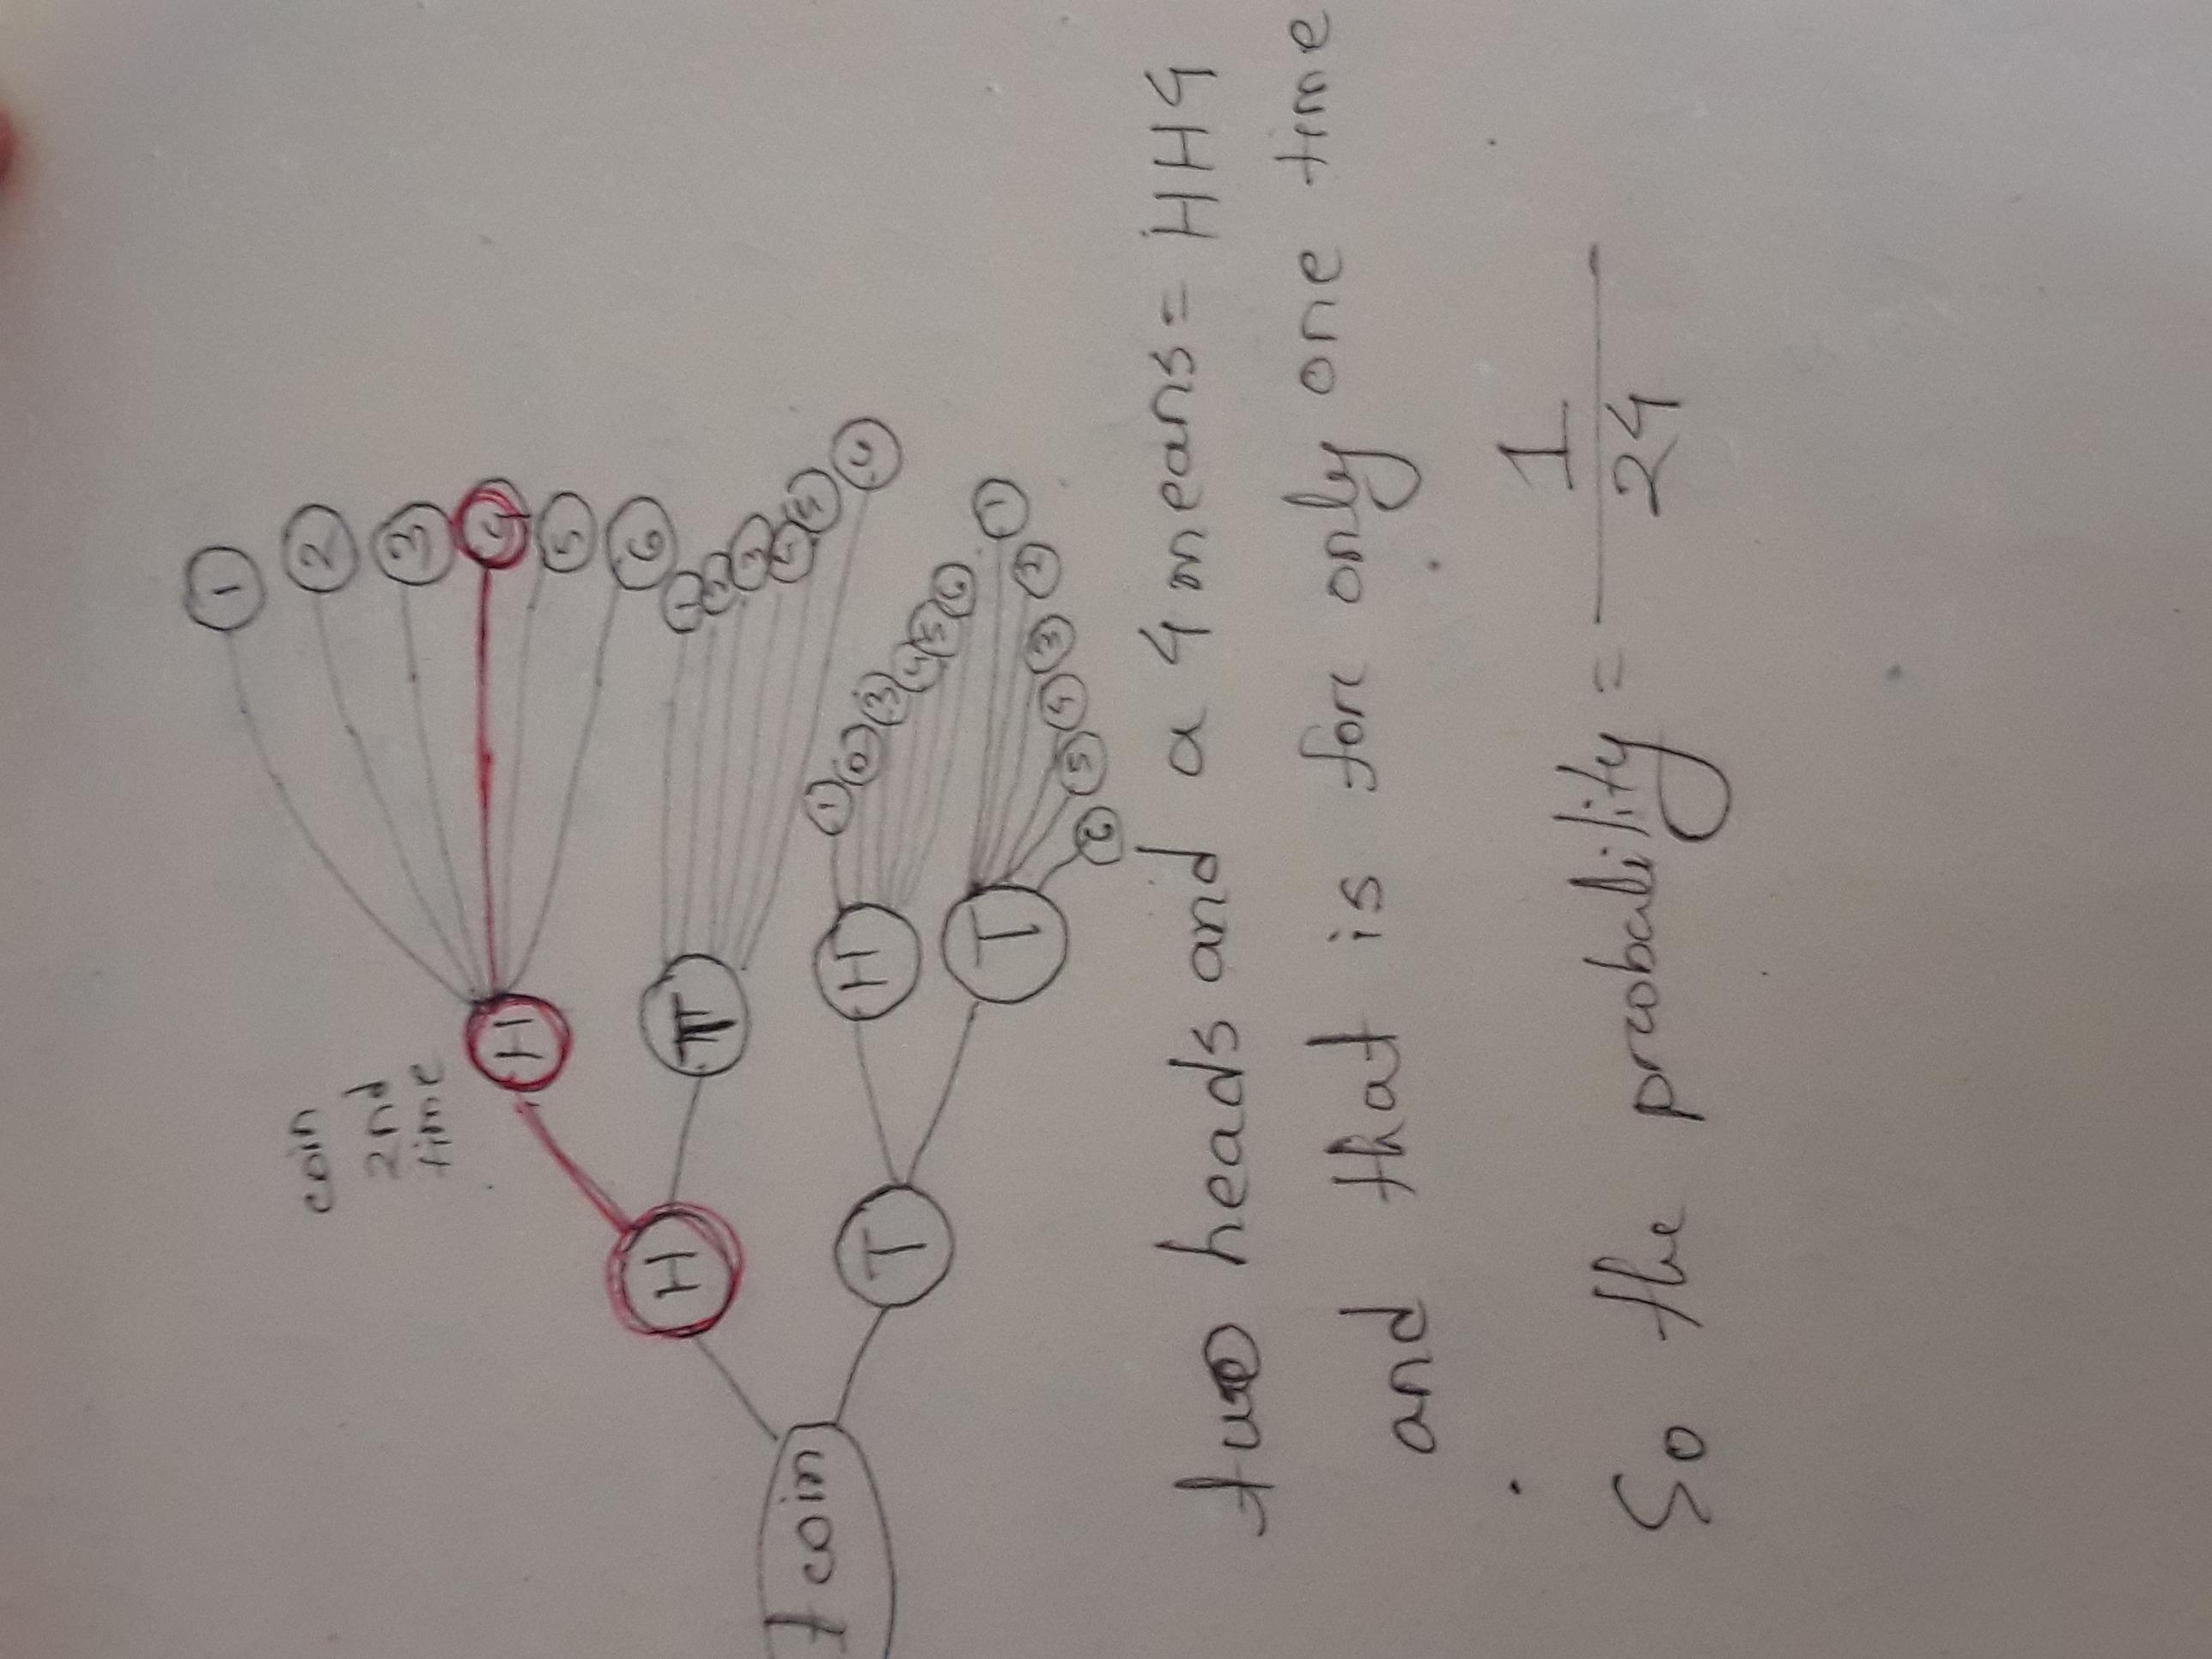 coin
2nd
time
1
2
3
4
5
6
H
H
T
1
2
3
4
5
6
coin
T
H
1
2
3
4
5
6
T
1
2
3
4
5
6
two heads and a 4 means = HH4
and that is for only one time
So the probability = 1/24